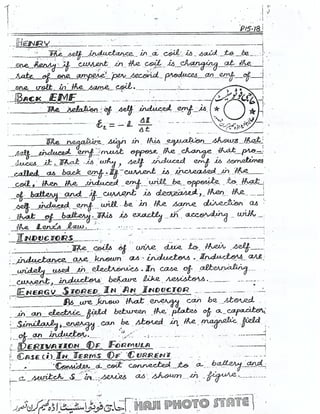 P15-18
HENRY
The self inductance in a coil is said to be
one henry if current in the coil is changing at the
rate of one ampere per second produces an emf of
one volt in the same coil.
BACK EMF
The relation of self induced emf is
ε₂ = -L ΔI/Δt
The negative sign in this equation shows that
self induced emf must oppose the change that pro-
duces it. That is why, self induced emf is sometimes
called as back emf. If current is increased in the
coil, then the induced emf will be opposite to that
of battery and if current is decreased, then the
self induced emf will be in the same direction as
that of battery. This is exactly in according with
the Lenz's law.
INDUCTORS
The coils of wire due to their self
inductance are known as inductors. Inductors are
widely used in electronics. In case of alternating
current, inductors behave like resistors.
ENERGY STORED IN AN INDUCTOR
As we know that energy can be stored
in an electric field between the plates of a capacitor,
Similarly, energy can be stored in the magnetic field
of an inductor.
DERIVATION OF FORMULA
CASE (i) IN TERMS OF CURRENT
Consider a coil connected to a battery and
a switch S in series as shown in figure.
HAJI PHOTO STATE